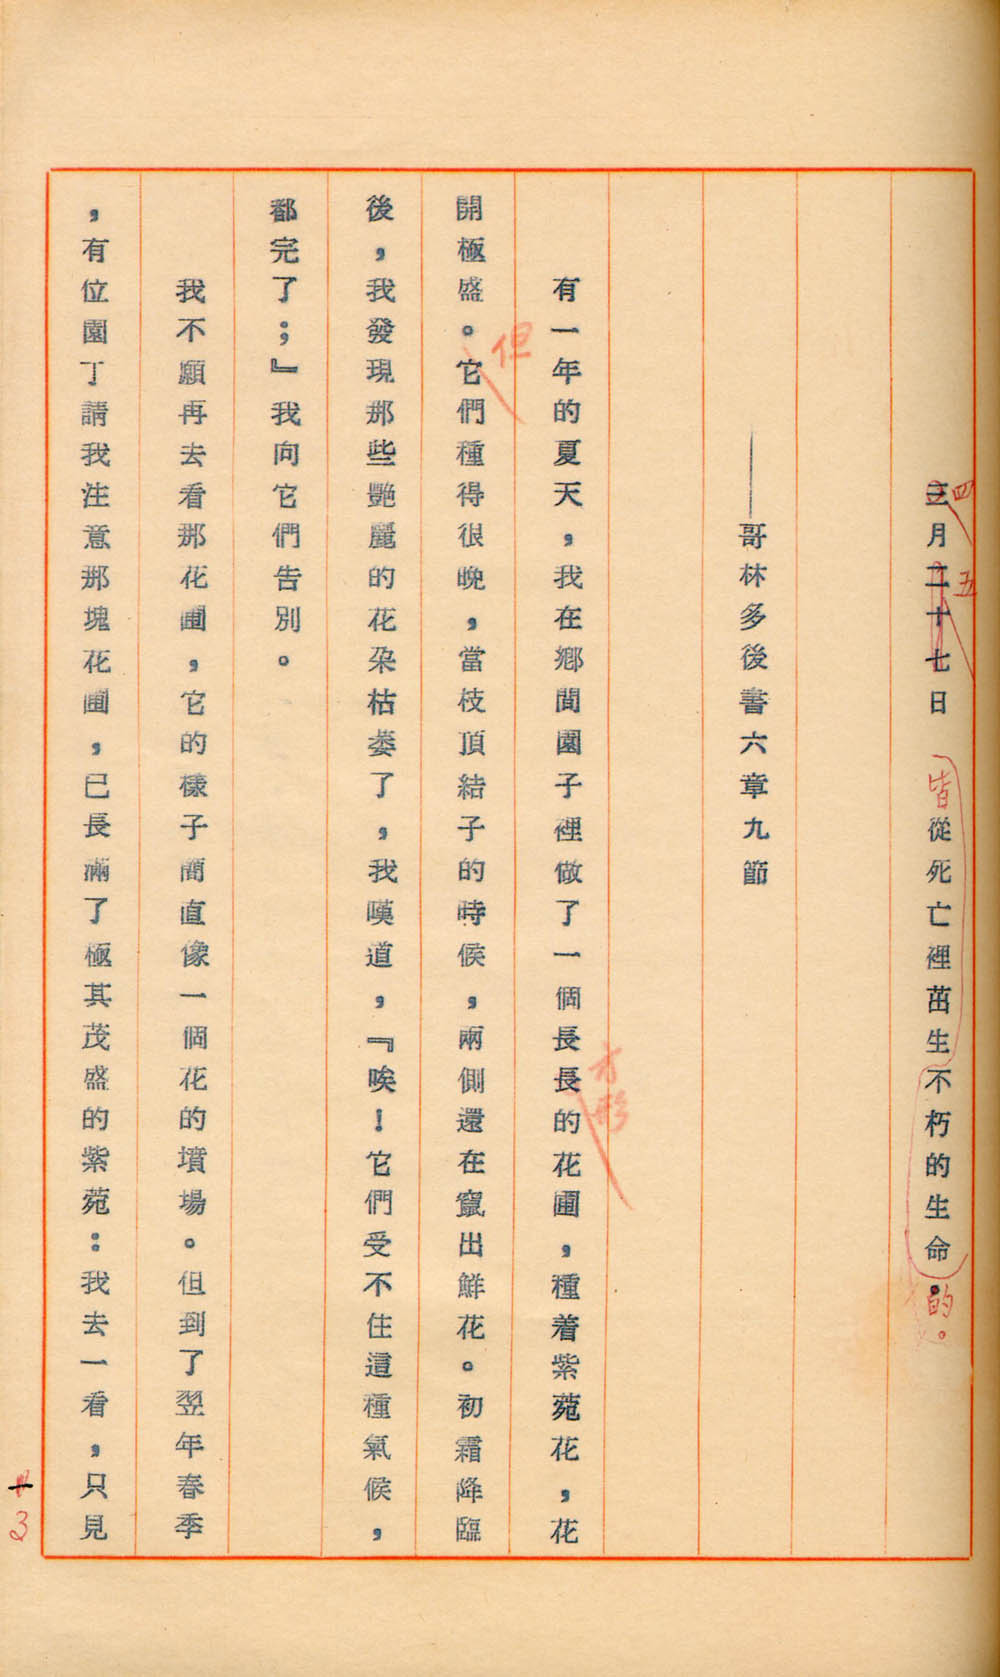 三月二十七日　從死亡裡茁生不朽的生命。
四
五
皆
的。
——哥林多後書六章九節
有一年的夏天，我在鄉間園子裡做了一個長長的花圃，種着紫菀花，花
方形
開極盛。它們種得很晚，當枝頂結子的時候，兩側還在竄出鮮花。初霜降臨
但
後，我發現那些艷麗的花朶枯萎了，我嘆道，『唉！它們受不住這種氣候，
都完了；』我向它們告別。
我不願再去看那花圃，它的樣子簡直像一個花的墳場。但到了翌年春季
，有位園丁請我注意那塊花圃，已長滿了極其茂盛的紫菀：我去一看，只見
3